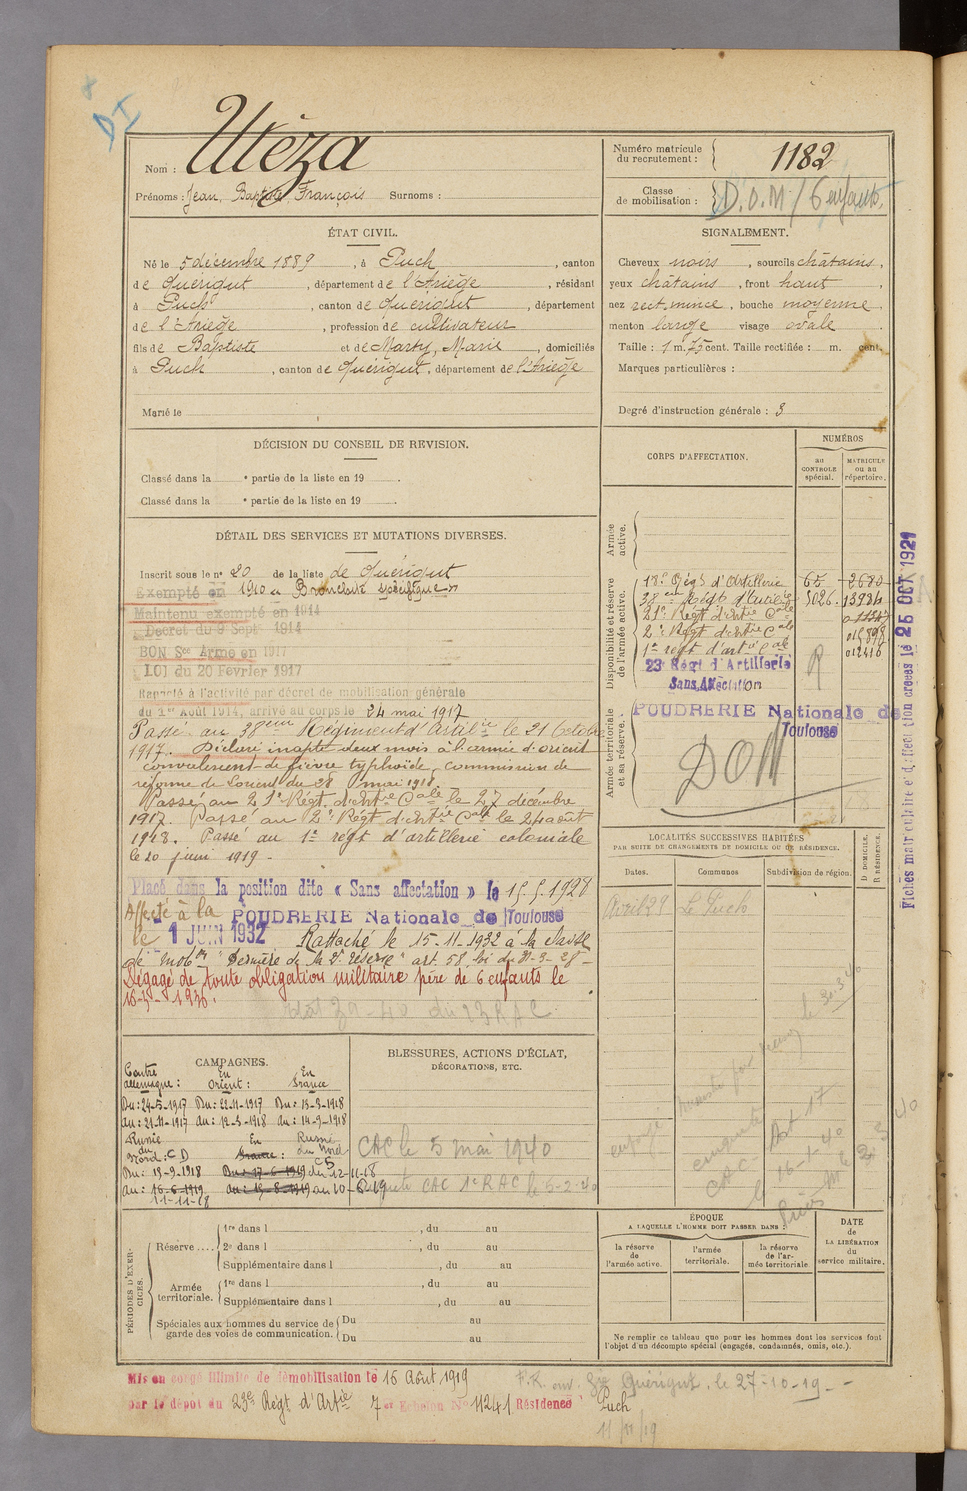 DI
Nom : Utéza
Prénoms : Jean, Baptiste, François Surnoms :
Numéro matricule du recrutement : 1182
Classe de mobilisation : D.O.M / 6 enfants.
ÉTAT CIVIL.
Né le 5 décembre 1889, à Puch, canton
de Quérigut, département de l'Ariège, résidant
à Puch, canton de Quérigut, département
de l'Ariège, profession de cultivateur
fils de Baptiste et de Marty, Marie, domiciliés
à Puch, canton de Quérigut, département de l'Ariège
Marié le
SIGNALEMENT.
Cheveux noirs, sourcils châtains,
yeux châtains, front haut,
nez rect. mince, bouche moyenne,
menton large visage ovale.
Taille : 1 m. 75 cent. Taille rectifiée : m. cent.
Marques particulières :
Degré d'instruction générale : 3
DÉCISION DU CONSEIL DE REVISION.
Classé dans la e partie de la liste en 19 .
Classé dans la e partie de la liste en 19 .
DÉTAIL DES SERVICES ET MUTATIONS DIVERSES.
Inscrit sous le no 20 de la liste de Quérigut
Exempté en 1910
Maintenu exempté en 1914
Décret du 9 Sept 1914
BON Sce Armé en 1917
LOI du 20 Février 1917
Rappelé à l'activité par décret de mobilisation générale
du 1er Août 1914, arrivé au corps le 24 mai 1917
Passé au 38eme Régiment d'Artilie le 21 Octobre
1917. Déclaré inapte deux mois à l'armée d'orient
convalescent de fièvre typhoïde, commission de
réforme de Lorient du 28 mai 1918.
Passé au 21e Régt d'Intie Cale le 27 décembre
1917. Passé au 2e Régt d'Intie Cale le 24 août
1918. Passé au 1er régt d'artillerie coloniale
le 20 juin 1919 -
Placé dans la position dite « Sans affectation » le 15.5.1928
Affecté à la POUDRERIE Nationale de Toulouse
le 1 JUIN 1932 Rattaché le 15-11-1932 à la classe
de mobon "Dernière de la 2e réserve" art. 58, loi du 31-3-28 -
Dégagé de toute obligation militaire père de 6 enfants le
16-3-1936.
39-40 du 13 RAC
CORPS D'AFFECTATION.
NUMÉROS
au CONTROLE spécial.
MATRICULE ou au répertoire.
Armée active.
Disponibilité et réserve de l'armée active.
18e Régt d'Artillerie 65 2680
38eme Régt d'Artillie 5026 13934
21e Régt d'Intie Cale
2e Régt d'Intie Cale
1er régt d'artie Cale 012416
23e Régt d'Artillerie R
Sans Affectation
Armée territoriale et sa réserve.
POUDRERIE Nationale de
Toulouse
DOM
LOCALITÉS SUCCESSIVES HABITÉES
PAR SUITE DE CHANGEMENTS DE DOMICILE OU DE RÉSIDENCE.
Dates. Communes Subdivision de région. D DOMICILE. R RÉSIDENCE.
Avril 29 Le Puch
Fiches matriculaire et d'affectation créées le 25 OCT 1921
CAMPAGNES.
Contre allemagne : En Orient : En France
Du : 24-5-1917 Du : 22-11-1917 Du : 13-3-1918
au : 21-11-1917 au : 12-3-1918 au : 14-9-1918
Russie du Nord : CD En France : Russie du Nord CS
Du : 13-9-1918 Du : 17-6-1919 du 12-11-18
au : 16-6-1919 au : 19-8-1919 au 10-6-19
11-11-18
BLESSURES, ACTIONS D'ÉCLAT,
DÉCORATIONS, ETC.
CAC le 5 mai 1940
CAC 1e RAC le 5-2-40
CAC - Art 17
le 16-1-40
le 30-3-40
PÉRIODES D'EXERCICES.
Réserve ....
1re dans l , du au
2e dans l , du au
Supplémentaire dans l , du au
Armée territoriale.
1re dans l , du au
Supplémentaire dans l , du au
Spéciales aux hommes du service de garde des voies de communication.
Du au
Du au
ÉPOQUE
A LAQUELLE L'HOMME DOIT PASSER DANS :
la réserve de l'armée active.
l'armée territoriale.
la réserve de l'armée territoriale
DATE de LA LIBÉRATION du service militaire.
Ne remplir ce tableau que pour les hommes dont les services font
l'objet d'un décompte spécial (engagés, condamnés, omis, etc.).
Mis en congé illimité de démobilisation le 16 Août 1919
par le dépôt du 23e Régt d'Artie 7e Echelon No 11241 Résidence Puch
Quérigut, le 27-10-19 -
11/11/19